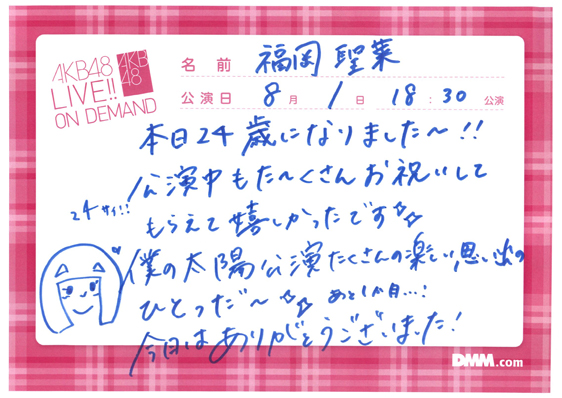 AKB48
LIVE!!
ON DEMAND
AKB
48
名前 福岡聖菜
公演日 8月1日 18:30公演
本日24歳になりました〜!!
公演中もた〜くさんお祝いして
もらえて嬉しかったです
24サイ!!
僕の太陽公演たくさんの楽しい思い出の
ひとつだ〜 あと1か月…!
今日はありがとうございました!
DMM.com